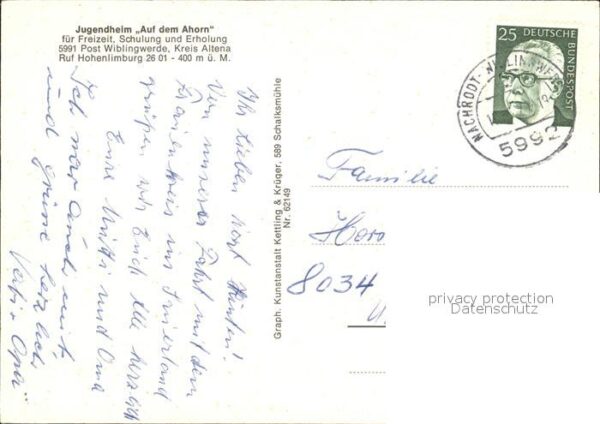 Jugendheim „Auf dem Ahorn"
für Freizeit, Schulung und Erholung
5991 Post Wiblingwerde, Kreis Altena
Ruf Hohenlimburg 26 01 - 400 m ü. M.
Ihr lieben
Von unserer Fahrt mit dem
Frauenkreis ins Sauerland
grüßen wir Euch alle herzlich
Eure Mutti und Oma
Ich war auch mit,
und grüße herzlich
Vati + Opa
Graph. Kunstanstalt Kettling & Krüger, 589 Schalksmühle
Nr. 62149
25 DEUTSCHE BUNDESPOST
NACHRODT-WIBLINGWERDE
5992
Familie
Horo
8034
privacy protection
Datenschutz